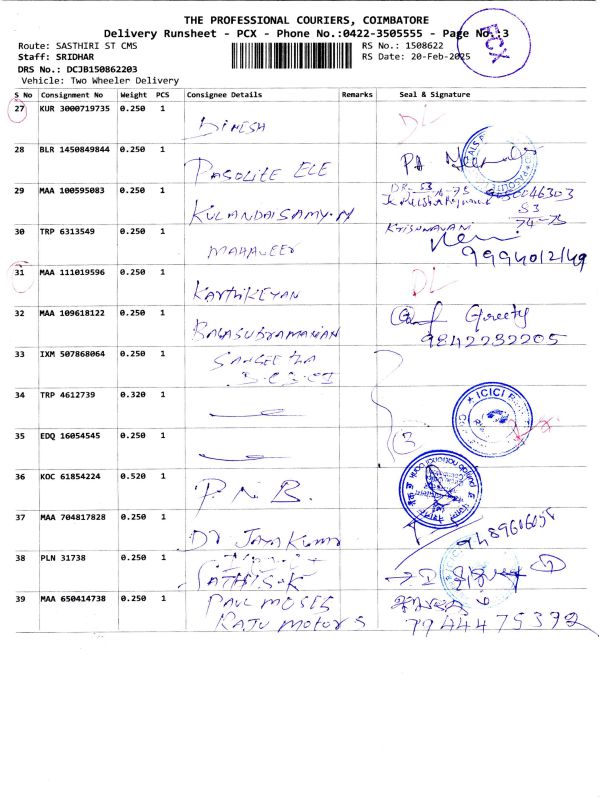 THE PROFESSIONAL COURIERS, COIMBATORE
Delivery Runsheet - PCX - Phone No.:0422-3505555 - Page No.:3
PCX
Route: SASTHIRI ST CMS
RS No.: 1508622
Staff: SRIDHAR
RS Date: 20-Feb-2025
DRS No.: DCJB150862203
Vehicle: Two Wheeler Delivery
S No Consignment No Weight PCS Consignee Details Remarks Seal & Signature
27 KUR 3000719735 0.250 1 DINESH DL
28 BLR 1450849844 0.250 1 PASOLITE ELE
29 MAA 100595083 0.250 1 KULANDAISAMY.M
30 TRP 6313549 0.250 1 MAHAVEER
9994012149
31 MAA 111019596 0.250 1 KARTHIKEYAN DL
32 MAA 109618122 0.250 1 BALASUBRAMANIAN
9842232205
33 IXM 507868064 0.250 1 SANGEETHA
34 TRP 4612739 0.320 1
ICICI
35 EDQ 16054545 0.250 1
3
36 KOC 61854224 0.520 1 P.N.B.
37 MAA 704817828 0.250 1 Dr Jayakumar
9489606055
38 PLN 31738 0.250 1 SATHIS.K
39 MAA 650414738 0.250 1 PAUL MOSES
RAJU MOTORS
7944475392